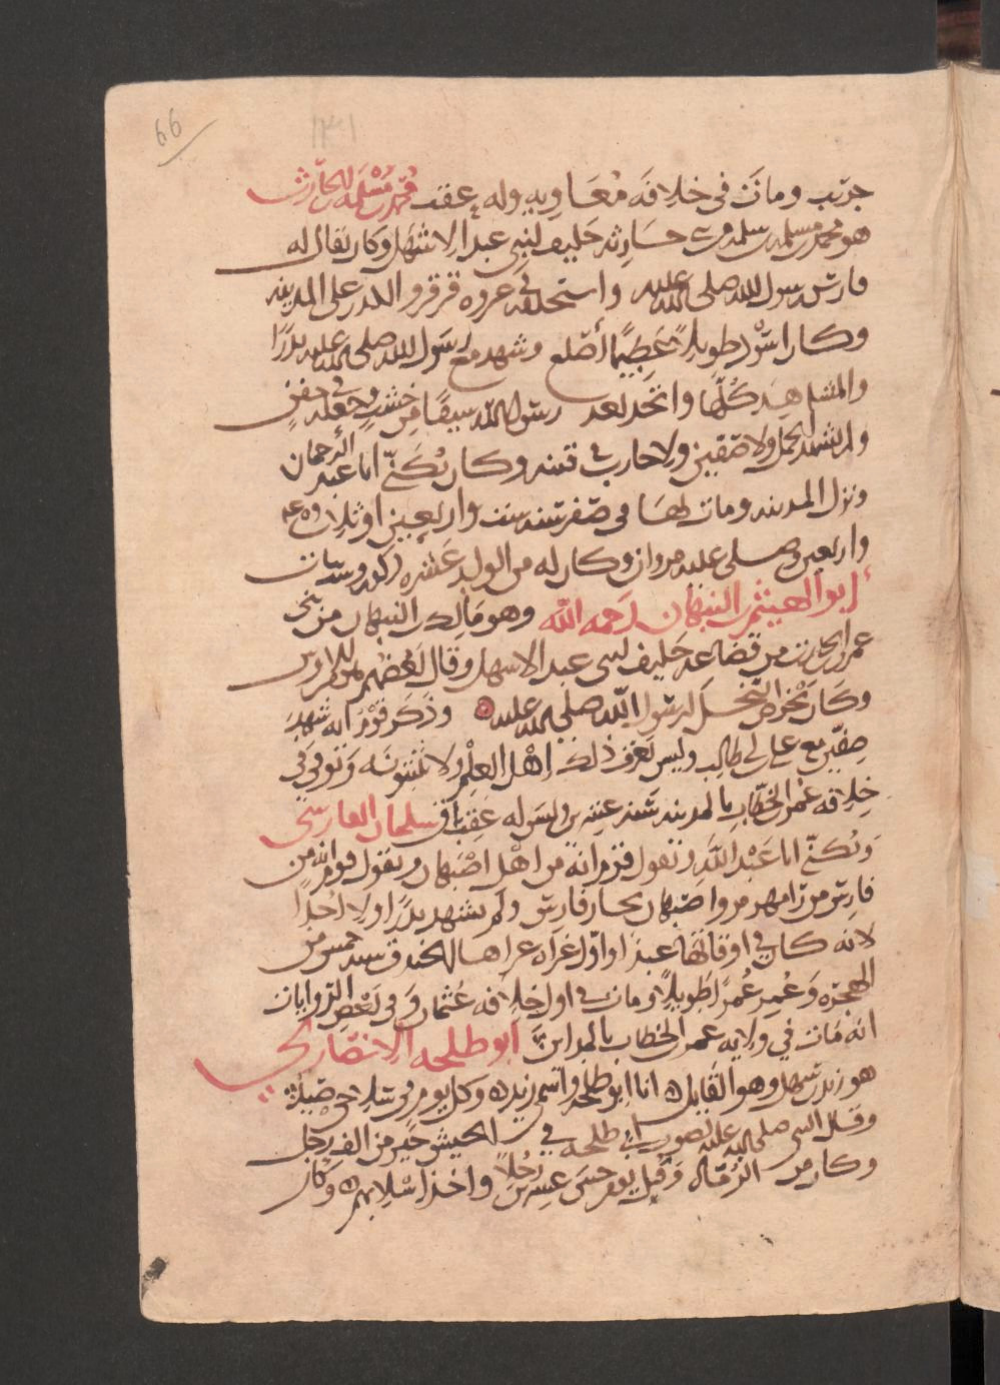 66
١٣١
جرّب ومات في خلافة معاوية وله عقب محمد بن مسلمة بن الحارث
هو محمد بن مسلمة بن سلمة من حارثة حليف لبني عبد الاشهل وكان يقال له
فارس رسول الله صلى الله عليه واستخلفه في غزوة قرقرة الكدر على المدينة
وكان اسود طويلا عظيما أصلع وشهد مع رسول الله صلى الله عليه بدرا
والمشاهد كلها واتخذ بعد رسول الله سيفا من خشب وجعله في جفن
ولم يشهد الجمل ولا صفين ولا حارب في فتنة وكان يكنى ابا عبد الرحمان
ونزل المدينة ومات بها في صفر سنة ست واربعين او ثلاث
واربعين وصلى عليه مروان وكان له من الولد عشرة ذكور وست بنات
ابو الهيثم بن التيهان رحمه الله وهو مالك بن التيهان من بني
عمرو بن الحارث من قضاعة حليف لبني عبد الاشهل وقال بعضهم من الاوس
وكان يخرص النخل لرسول الله صلى الله عليه وذكر قوم انه شهد
صفين مع علي بن ابي طالب وليس يعرف ذلك اهل العلم ولا يثبتونه وتوفي في
خلافة عمر بن الخطاب بالمدينة سنة عشرين وليس له عقب باق سلمان الفارسي
ويكنى ابا عبد الله ويقول قوم انه من اهل اصبهان ويقول قوم انه من
فارس من رامهرمز واصبهان بحار فارس ولم يشهد بدرا ولا احدا
لانه كان في اوقاتها عبدا واول غزاة غزاها الخندق سنة خمس من
الهجرة وعمر عمرا طويلا ومات في اول خلافة عثمان وفي بعض الروايات
انه مات في ولاية عمر بن الخطاب بالمداين ابو طلحة الانصاري
هو زيد بن سهل وهو القايل انا ابو طلحة واسمي زيد وكل يوم في سلاحي صيد
وقال النبي صلى الله عليه لصوت ابي طلحة في الجيش خير من الف رجل
وكان من الرماة وقتل يوم حنين عشرين رجلا واخذ اسلابهم وكان